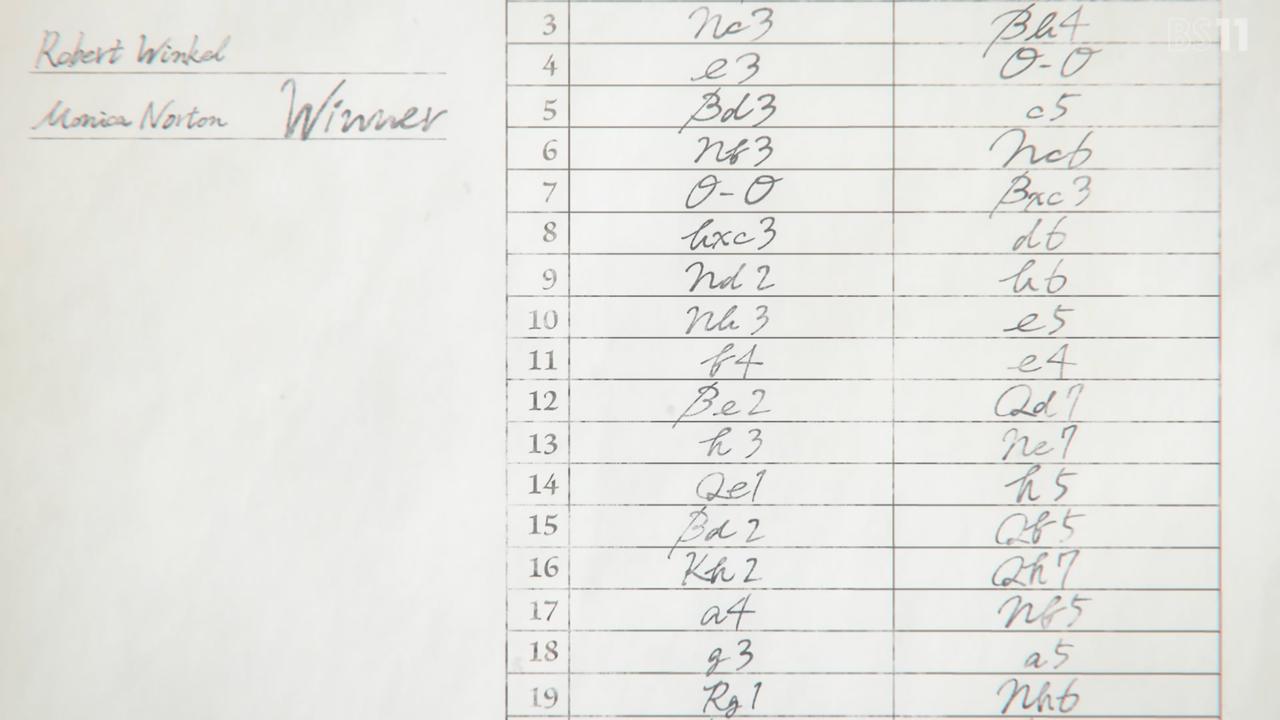 Robert Winkel
Monica Norton Winner
3 Nc3 Bb4
4 e3 O-O
5 Bd3 c5
6 Nf3 Nc6
7 O-O Bxc3
8 bxc3 d6
9 Nd2 b6
10 Nb3 e5
11 f4 e4
12 Be2 Qd7
13 h3 Ne7
14 Qe1 h5
15 Bd2 Qf5
16 Kh2 Qh7
17 a4 Nf5
18 g3 a5
19 Rg1 Nh6
BS11